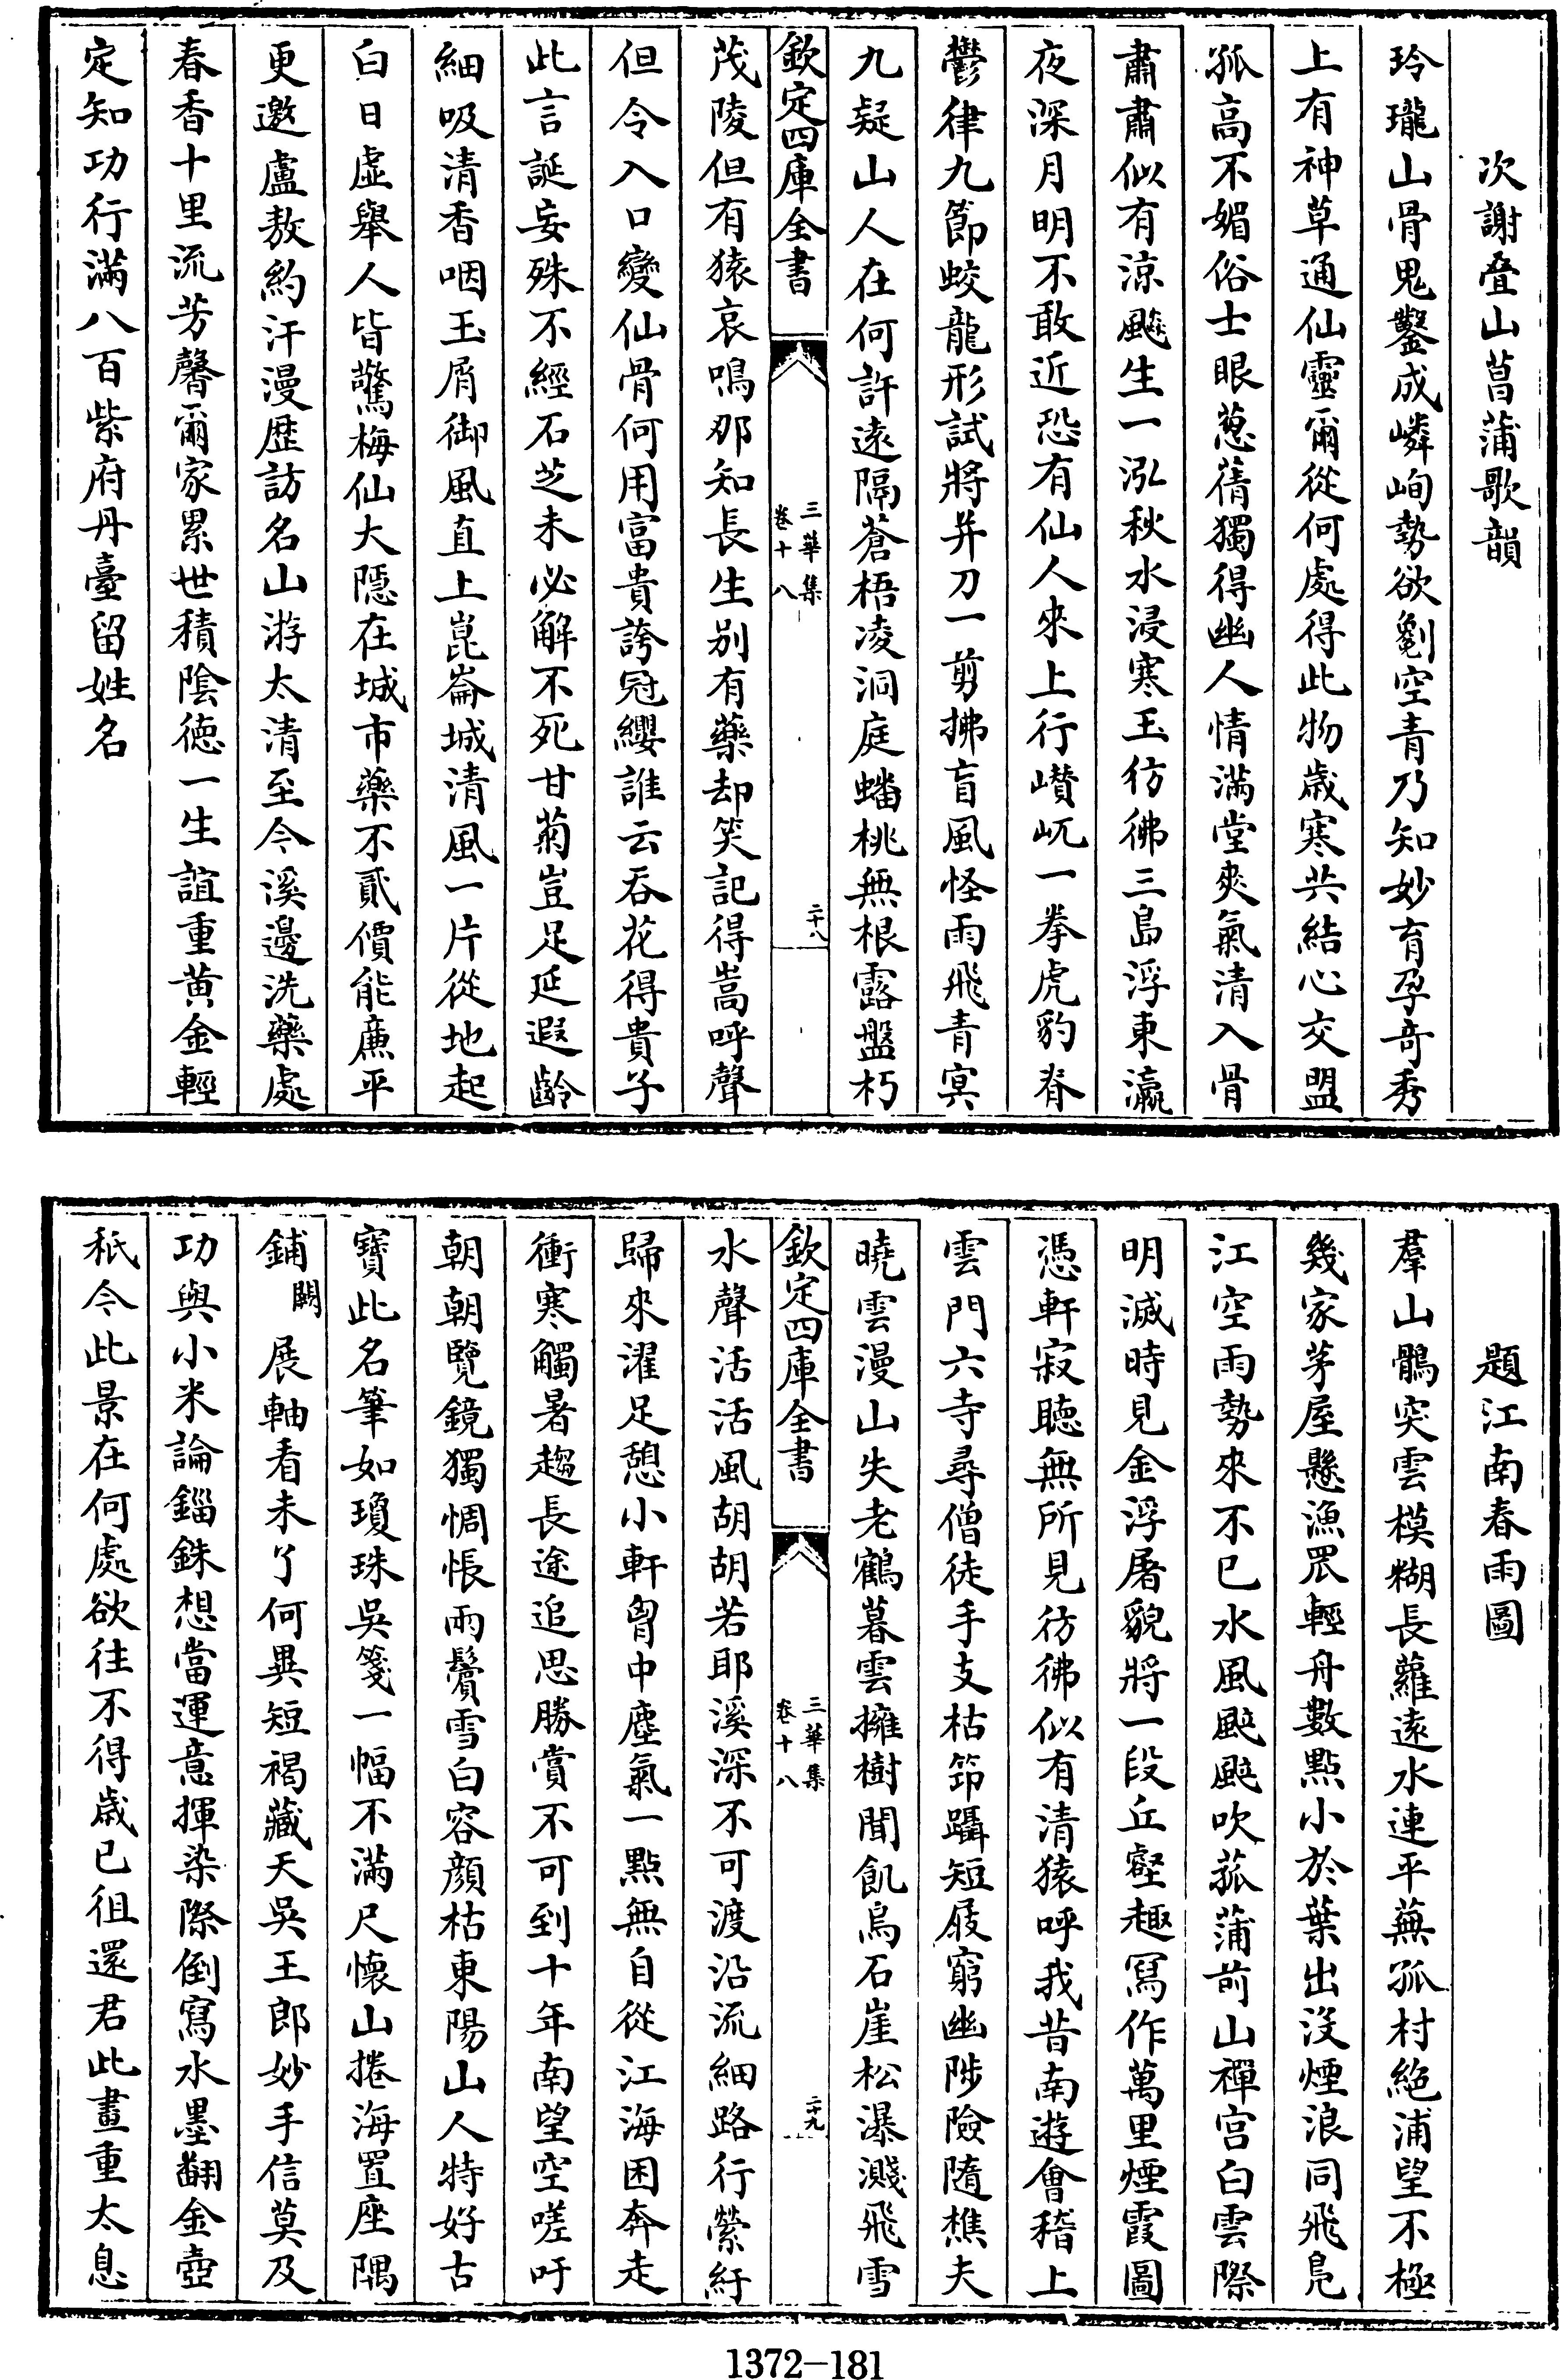 次謝疊山菖蒲歌韻
玲瓏山骨鬼鑿成嶙峋勢欲劖空青乃知妙育孕奇秀
上有神草通仙靈爾從何處得此物歲寒共結心交盟
孤高不媚俗士眼蔥蒨獨得幽人情滿堂爽氣清入骨
肅肅似有涼飈生一泓秋水浸寒玉彷彿三島浮東瀛
夜深月明不敢近恐有仙人來上行巑岏一拳虎豹脊
鬱律九節蛟龍形試將并刀一剪拂盲風怪雨飛青冥
九疑山人在何許遠隔蒼梧凌洞庭蟠桃無根露盤朽
欽定四庫全書
三華集
卷十八
二十八
茂陵但有猿哀鳴那知長生别有藥却笑記得嵩呼聲
但令入口變仙骨何用富貴誇冠纓誰云吞花得貴子
此言誕妄殊不經石芝未必解不死甘菊豈足延遐齡
細吸清香咽玉屑御風直上崑崙城清風一片從地起
白日虛舉人皆驚梅仙大隱在城市藥不貳價能廉平
更邀盧敖約汗漫歴訪名山游太清至今溪邊洗藥處
春香十里流芳馨爾家累世積陰德一生誼重黃金輕
定知功行滿八百紫府丹臺留姓名
題江南春雨圖
羣山鶻突雲模糊長蘿遠水連平蕪孤村絶浦望不極
幾家茅屋懸漁罛輕舟數點小於葉出没煙浪同飛鳧
江空雨勢來不已水風颼颼吹菰蒲前山禪宫白雲際
明滅時見金浮屠貌將一段丘壑趣冩作萬里煙霞圖
憑軒寂聽無所見彷彿似有清猿呼我昔南遊會稽上
雲門六寺尋僧徒手支枯笻躡短屐窮幽陟險隨樵夫
曉雲漫山失老鶴暮雲擁樹聞飢烏石崖松瀑濺飛雪
欽定四庫全書
三華集
卷十八
二十九
水聲活活風胡胡若耶溪深不可渡沿流細路行縈紆
歸來濯足憩小軒胷中塵氣一點無自從江海困奔走
衝寒觸暑趨長途追思勝賞不可到十年南望空嗟吁
朝朝覽鏡獨惆悵兩鬢雪白容顔枯東陽山人特好古
寶此名筆如瓊珠吳箋一幅不滿尺懷山捲海置座隅
鋪闕展軸看未了何異短褐藏天吳王郎妙手信莫及
功與小米論錙銖想當運意揮染際倒寫水墨翻金壺
秖令此景在何處欲往不得歲已徂還君此畫重太息
1372-181